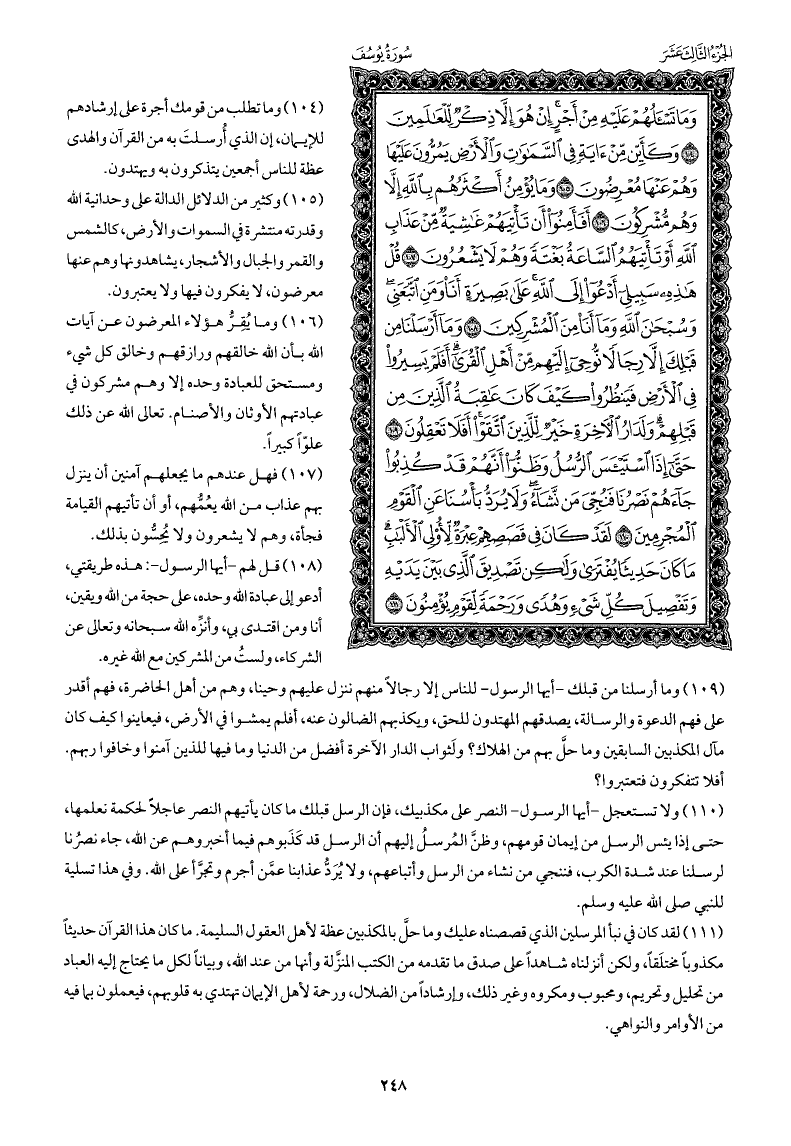 الجزء الثالث عشر
سورة يوسف
وَمَا تَسْـَٔلُهُمْ عَلَيْهِ مِنْ أَجْرٍ ۚ إِنْ هُوَ إِلَّا ذِكْرٌ لِّلْعَـٰلَمِينَ
﴿١٠٤﴾ وَكَأَيِّن مِّنْ ءَايَةٍ فِى ٱلسَّمَـٰوَٰتِ وَٱلْأَرْضِ يَمُرُّونَ عَلَيْهَا
وَهُمْ عَنْهَا مُعْرِضُونَ ﴿١٠٥﴾ وَمَا يُؤْمِنُ أَكْثَرُهُم بِٱللَّهِ إِلَّا
وَهُم مُّشْرِكُونَ ﴿١٠٦﴾ أَفَأَمِنُوٓا۟ أَن تَأْتِيَهُمْ غَـٰشِيَةٌ مِّنْ عَذَابِ
ٱللَّهِ أَوْ تَأْتِيَهُمُ ٱلسَّاعَةُ بَغْتَةً وَهُمْ لَا يَشْعُرُونَ ﴿١٠٧﴾ قُلْ
هَـٰذِهِۦ سَبِيلِىٓ أَدْعُوٓا۟ إِلَى ٱللَّهِ ۚ عَلَىٰ بَصِيرَةٍ أَنَا۠ وَمَنِ ٱتَّبَعَنِى ۖ
وَسُبْحَـٰنَ ٱللَّهِ وَمَآ أَنَا۠ مِنَ ٱلْمُشْرِكِينَ ﴿١٠٨﴾ وَمَآ أَرْسَلْنَا مِن
قَبْلِكَ إِلَّا رِجَالًا نُّوحِىٓ إِلَيْهِم مِّنْ أَهْلِ ٱلْقُرَىٰٓ ۗ أَفَلَمْ يَسِيرُوا۟
فِى ٱلْأَرْضِ فَيَنظُرُوا۟ كَيْفَ كَانَ عَـٰقِبَةُ ٱلَّذِينَ مِن
قَبْلِهِمْ ۗ وَلَدَارُ ٱلْـَٔاخِرَةِ خَيْرٌ لِّلَّذِينَ ٱتَّقَوْا۟ ۗ أَفَلَا تَعْقِلُونَ ﴿١٠٩﴾
حَتَّىٰٓ إِذَا ٱسْتَيْـَٔسَ ٱلرُّسُلُ وَظَنُّوٓا۟ أَنَّهُمْ قَدْ كُذِبُوا۟
جَآءَهُمْ نَصْرُنَا فَنُجِّىَ مَن نَّشَآءُ ۖ وَلَا يُرَدُّ بَأْسُنَا عَنِ ٱلْقَوْمِ
ٱلْمُجْرِمِينَ ﴿١١٠﴾ لَقَدْ كَانَ فِى قَصَصِهِمْ عِبْرَةٌ لِّأُو۟لِى ٱلْأَلْبَـٰبِ ۗ
مَا كَانَ حَدِيثًا يُفْتَرَىٰ وَلَـٰكِن تَصْدِيقَ ٱلَّذِى بَيْنَ يَدَيْهِ
وَتَفْصِيلَ كُلِّ شَىْءٍ وَهُدًى وَرَحْمَةً لِّقَوْمٍ يُؤْمِنُونَ ﴿١١١﴾
(١٠٤) وما تطلب من قومك أجرة على إرشادهم
للإيمان، إن الذي أُرسلتَ به من القرآن والهدى
عظة للناس أجمعين يتذكرون به ويهتدون.
(١٠٥) وكثير من الدلائل الدالة على وحدانية الله
وقدرته منتشرة في السموات والأرض، كالشمس
والقمر والجبال والأشجار، يشاهدونها وهم عنها
معرضون، لا يفكرون فيها ولا يعتبرون.
(١٠٦) وما يُقِرُّ هؤلاء المعرضون عن آيات
الله بأن الله خالقهم ورازقهم وخالق كل شيء
ومستحق للعبادة وحده إلا وهم مشركون في
عبادتهم الأوثان والأصنام. تعالى الله عن ذلك
علوّاً كبيراً.
(١٠٧) فهل عندهم ما يجعلهم آمنين أن ينزل
بهم عذاب من الله يعُمُّهم، أو أن تأتيهم القيامة
فجأة، وهم لا يشعرون ولا يُحِسُّون بذلك.
(١٠٨) قل لهم -أيها الرسول-: هذه طريقتي،
أدعو إلى عبادة الله وحده، على حجة من الله ويقين،
أنا ومن اقتدى بي، وأنزِّه الله سبحانه وتعالى عن
الشركاء، ولستُ من المشركين مع الله غيره.
(١٠٩) وما أرسلنا من قبلك -أيها الرسول- للناس إلا رجالاً منهم ننزل عليهم وحينا، وهم من أهل الحاضرة، فهم أقدر
على فهم الدعوة والرسالة، يصدقهم المهتدون للحق، ويكذبهم الضالون عنه، أفلم يمشوا في الأرض، فيعاينوا كيف كان
مآل المكذبين السابقين وما حلَّ بهم من الهلاك؟ ولَثواب الدار الآخرة أفضل من الدنيا وما فيها للذين آمنوا وخافوا ربهم.
أفلا تتفكرون فتعتبروا؟
(١١٠) ولا تستعجل -أيها الرسول- النصر على مكذبيك، فإن الرسل قبلك ما كان يأتيهم النصر عاجلاً لحكمة نعلمها،
حتى إذا يئس الرسل من إيمان قومهم، وظنَّ المُرسلُ إليهم أن الرسل قد كَذَبوهم فيما أخبروهم عن الله، جاء نصرُنا
لرسلنا عند شدة الكرب، فننجي من نشاء من الرسل وأتباعهم، ولا يُرَدُّ عذابنا عمَّن أجرم وتجرَّأ على الله. وفي هذا تسلية
للنبي صلى الله عليه وسلم.
(١١١) لقد كان في نبأ المرسلين الذي قصصناه عليك وما حلَّ بالمكذبين عظة لأهل العقول السليمة. ما كان هذا القرآن حديثاً
مكذوباً مختلَقاً، ولكن أنزلناه شاهداً على صدق ما تقدمه من الكتب المنزَّلة وأنها من عند الله، وبياناً لكل ما يحتاج إليه العباد
من تحليل وتحريم، ومحبوب ومكروه وغير ذلك، وإرشاداً من الضلال، ورحمة لأهل الإيمان تهتدي به قلوبهم، فيعملون بما فيه
من الأوامر والنواهي.
٢٤٨